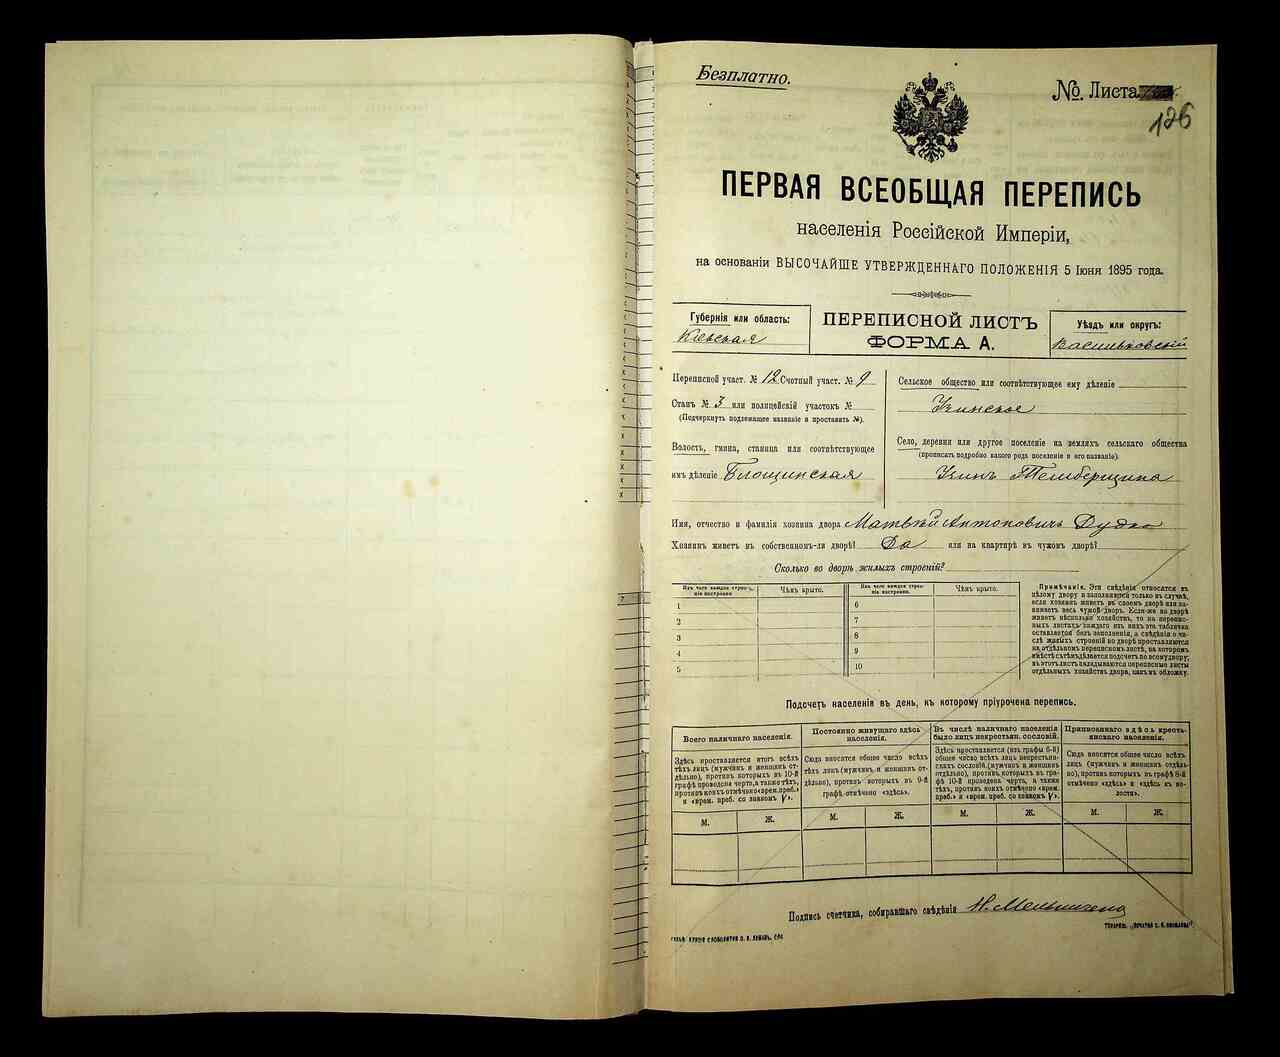 Безплатно.
№. Листа
126
ПЕРВАЯ ВСЕОБЩАЯ ПЕРЕПИСЬ
населенія Россійской Имперіи,
на основаніи ВЫСОЧАЙШЕ УТВЕРЖДЕННАГО ПОЛОЖЕНІЯ 5 Іюня 1895 года.
Губернія или область:
Кіевская
ПЕРЕПИСНОЙ ЛИСТЪ
ФОРМА А.
Уѣздъ или округъ:
Васильковскій
Переписной участ. № 12 Счетный участ. № 9
Станъ № 3 или полицейскій участокъ №
(Подчеркнуть подлежащее названіе и проставить №).
Волость, гмина, станица или соотвѣтствующее
имъ дѣленіе Блощинская
Сельское общество или соотвѣтствующее ему дѣленіе
Узинское
Село, деревня или другое поселеніе на земляхъ сельскаго общества
(прописать подробно какого рода поселеніе и его названіе).
Узинъ Темберщина
Имя, отчество и фамилія хозяина двора Матвѣй Антоновичъ Дудко
Хозяинъ живетъ въ собственномъ-ли дворѣ? Да или на квартирѣ въ чужомъ дворѣ?
Сколько во дворѣ жилыхъ строеній?
Изъ чего каждое строеніе построено. Чѣмъ крыто. Изъ чего каждое строеніе построено. Чѣмъ крыто.
1 6
2 7
3 8
4 9
5 10
Примѣчанія. Эти свѣдѣнія относятся къ
цѣлому двору и заполняются только въ случаѣ,
если хозяинъ живетъ въ своемъ дворѣ или занимаетъ
весь чужой дворъ. Если-же на дворѣ
живетъ нѣсколько хозяйствъ, то на переписныхъ
листахъ каждаго изъ нихъ эта табличка
оставляется безъ заполненія, а свѣдѣнія о числѣ
жилыхъ строеній во дворѣ проставляются
на отдѣльномъ переписномъ листѣ, на которомъ
вмѣстѣ съ тѣмъ дѣлается подсчетъ по всему двору;
въ этотъ листъ вкладываются переписные листы
отдѣльныхъ хозяйствъ двора, какъ въ обложку.
Подсчетъ населенія въ день, къ которому пріурочена перепись.
Всего наличнаго населенія.
Здѣсь проставляется итогъ всѣхъ
тѣхъ лицъ (мужчинъ и женщинъ отдѣльно),
противъ которыхъ въ 10-й
графѣ проведена черта, а также тѣхъ,
противъ коихъ отмѣчено «врем. преб.»
и «врем. преб. со знакомъ V».
Постоянно живущаго здѣсь
населенія.
Сюда вносится общее число всѣхъ
тѣхъ лицъ (мужчинъ и женщинъ отдѣльно),
противъ которыхъ въ 9-й
графѣ отмѣчено «здѣсь».
Въ числѣ наличнаго населенія
было лицъ некрестьян. сословій.
Здѣсь проставляется (изъ графы 6-й)
общее число всѣхъ лицъ некрестьянскихъ
сословій, (мужчинъ и женщинъ
отдѣльно), противъ которыхъ въ графѣ
10-й проведена черта, а также
тѣхъ, противъ коихъ отмѣчено «врем.
преб.» и «врем. преб. со знакомъ V».
Приписаннаго здѣсь крестьянскаго
населенія.
Сюда вносится общее число всѣхъ
лицъ (мужчинъ и женщинъ отдѣльно),
противъ которыхъ въ графѣ 8-й
отмѣчено «здѣсь» и «здѣсь къ волости».
М. Ж. М. Ж. М. Ж. М. Ж.
Подпись счетчика, собиравшаго свѣдѣнія Н. Мельниченко